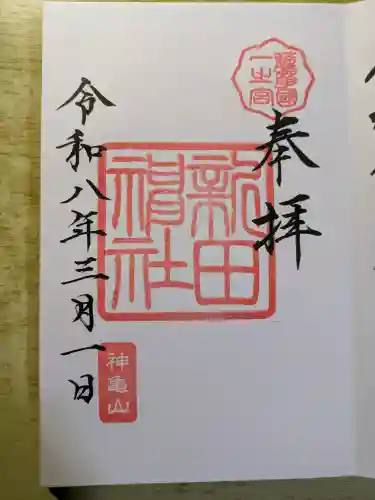 薩摩國一之宮
奉拝
新田神社
令和八年三月一日
神亀山